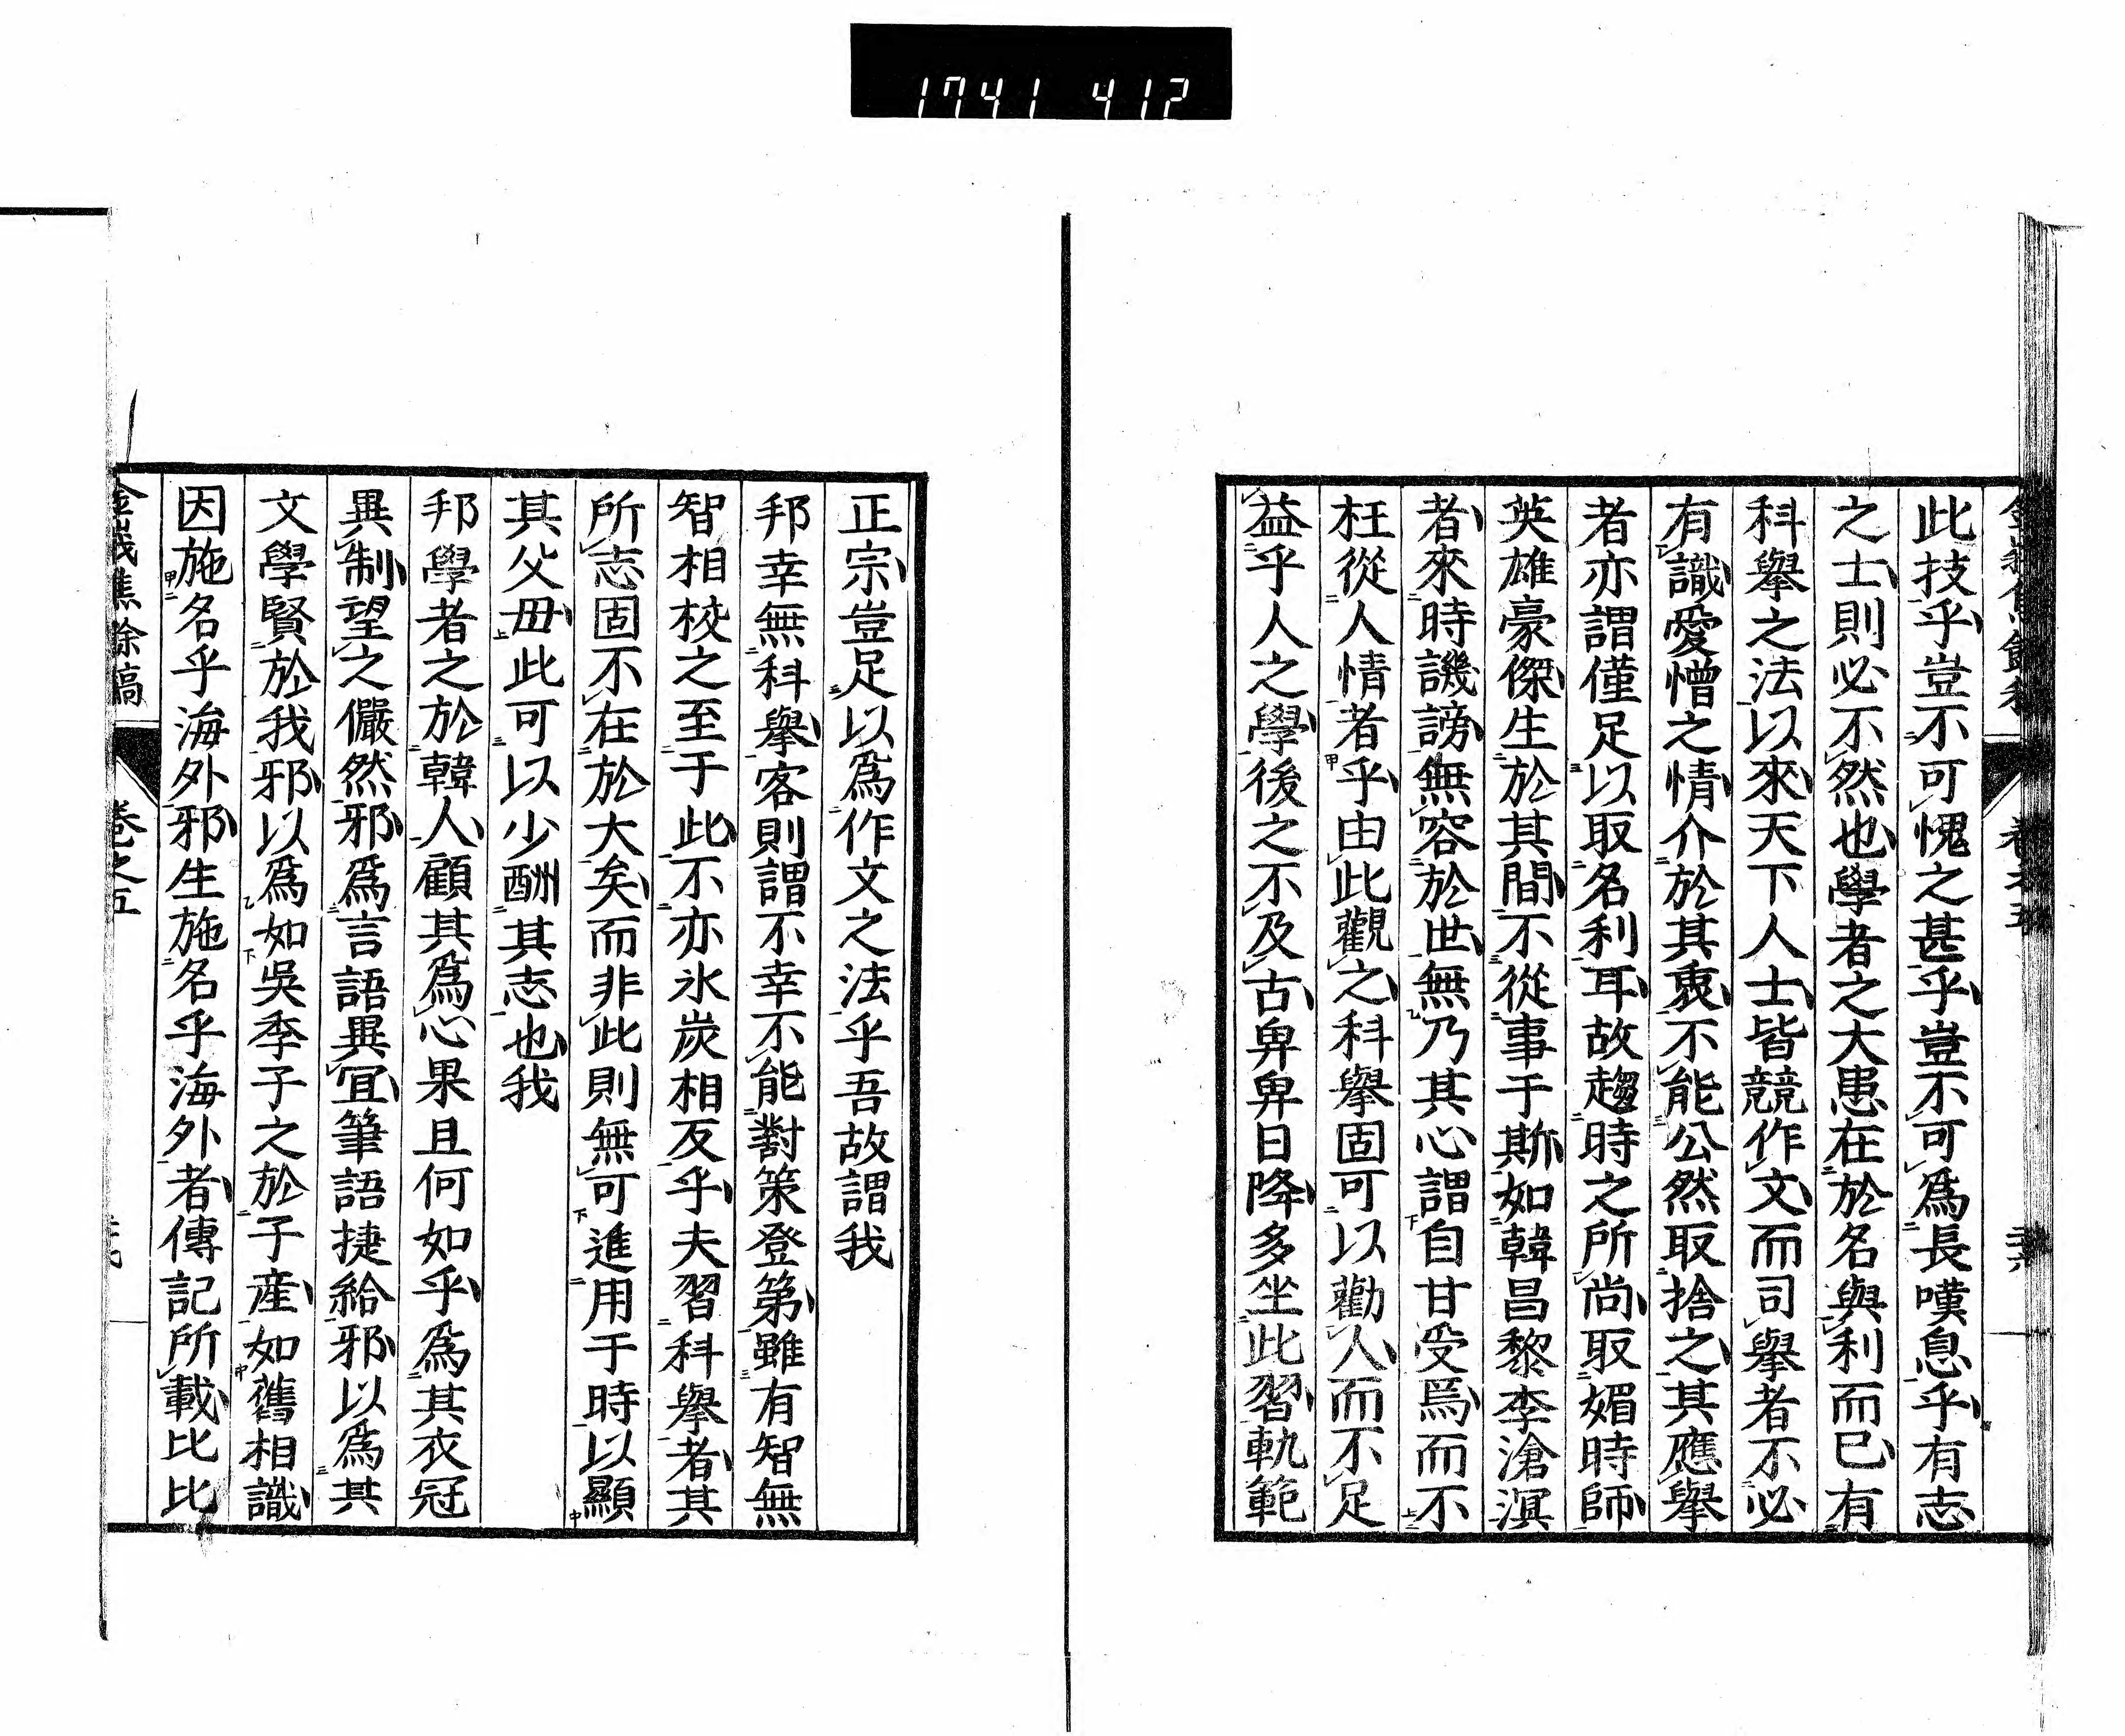 1741 412
此技乎豈不可愧之甚乎豈不可爲長嘆息乎有志
之士則必不然也學者之大患在於名與利而已有
科舉之法以來天下人士皆競作文而司舉者不必
有識愛憎之情介於其衷不能公然取捨之其應舉
者亦謂僅足以取名利耳故趨時之所尚取媚時師
英雄豪傑生於其間不從事于斯如韓昌黎李滄溟
者來時譏謗無容於世無乃其心謂自甘受焉而不
枉從人情者乎由此觀之科舉固可以勸人而不足
益乎人之學後之不及古卑卑日降多坐此習軌範
正宗豈足以爲作文之法乎吾故謂我
邦幸無科舉客則謂不幸不能對策登第雖有智無
智相校之至于此不亦氷炭相反乎夫習科舉者其
所志固不在於大矣而非此則無可進用于時以顯
其父毋此可以少酬其志也我
邦學者之於韓人顧其爲心果且何如乎爲其衣冠
異制望之儼然邪爲言語異冝筆語捷給邪以爲其
文學賢於我邪以爲如吳季子之於子產如舊相識
因施名乎海外邪生施名乎海外者傳記所載比比
焦餘稿
卷之五